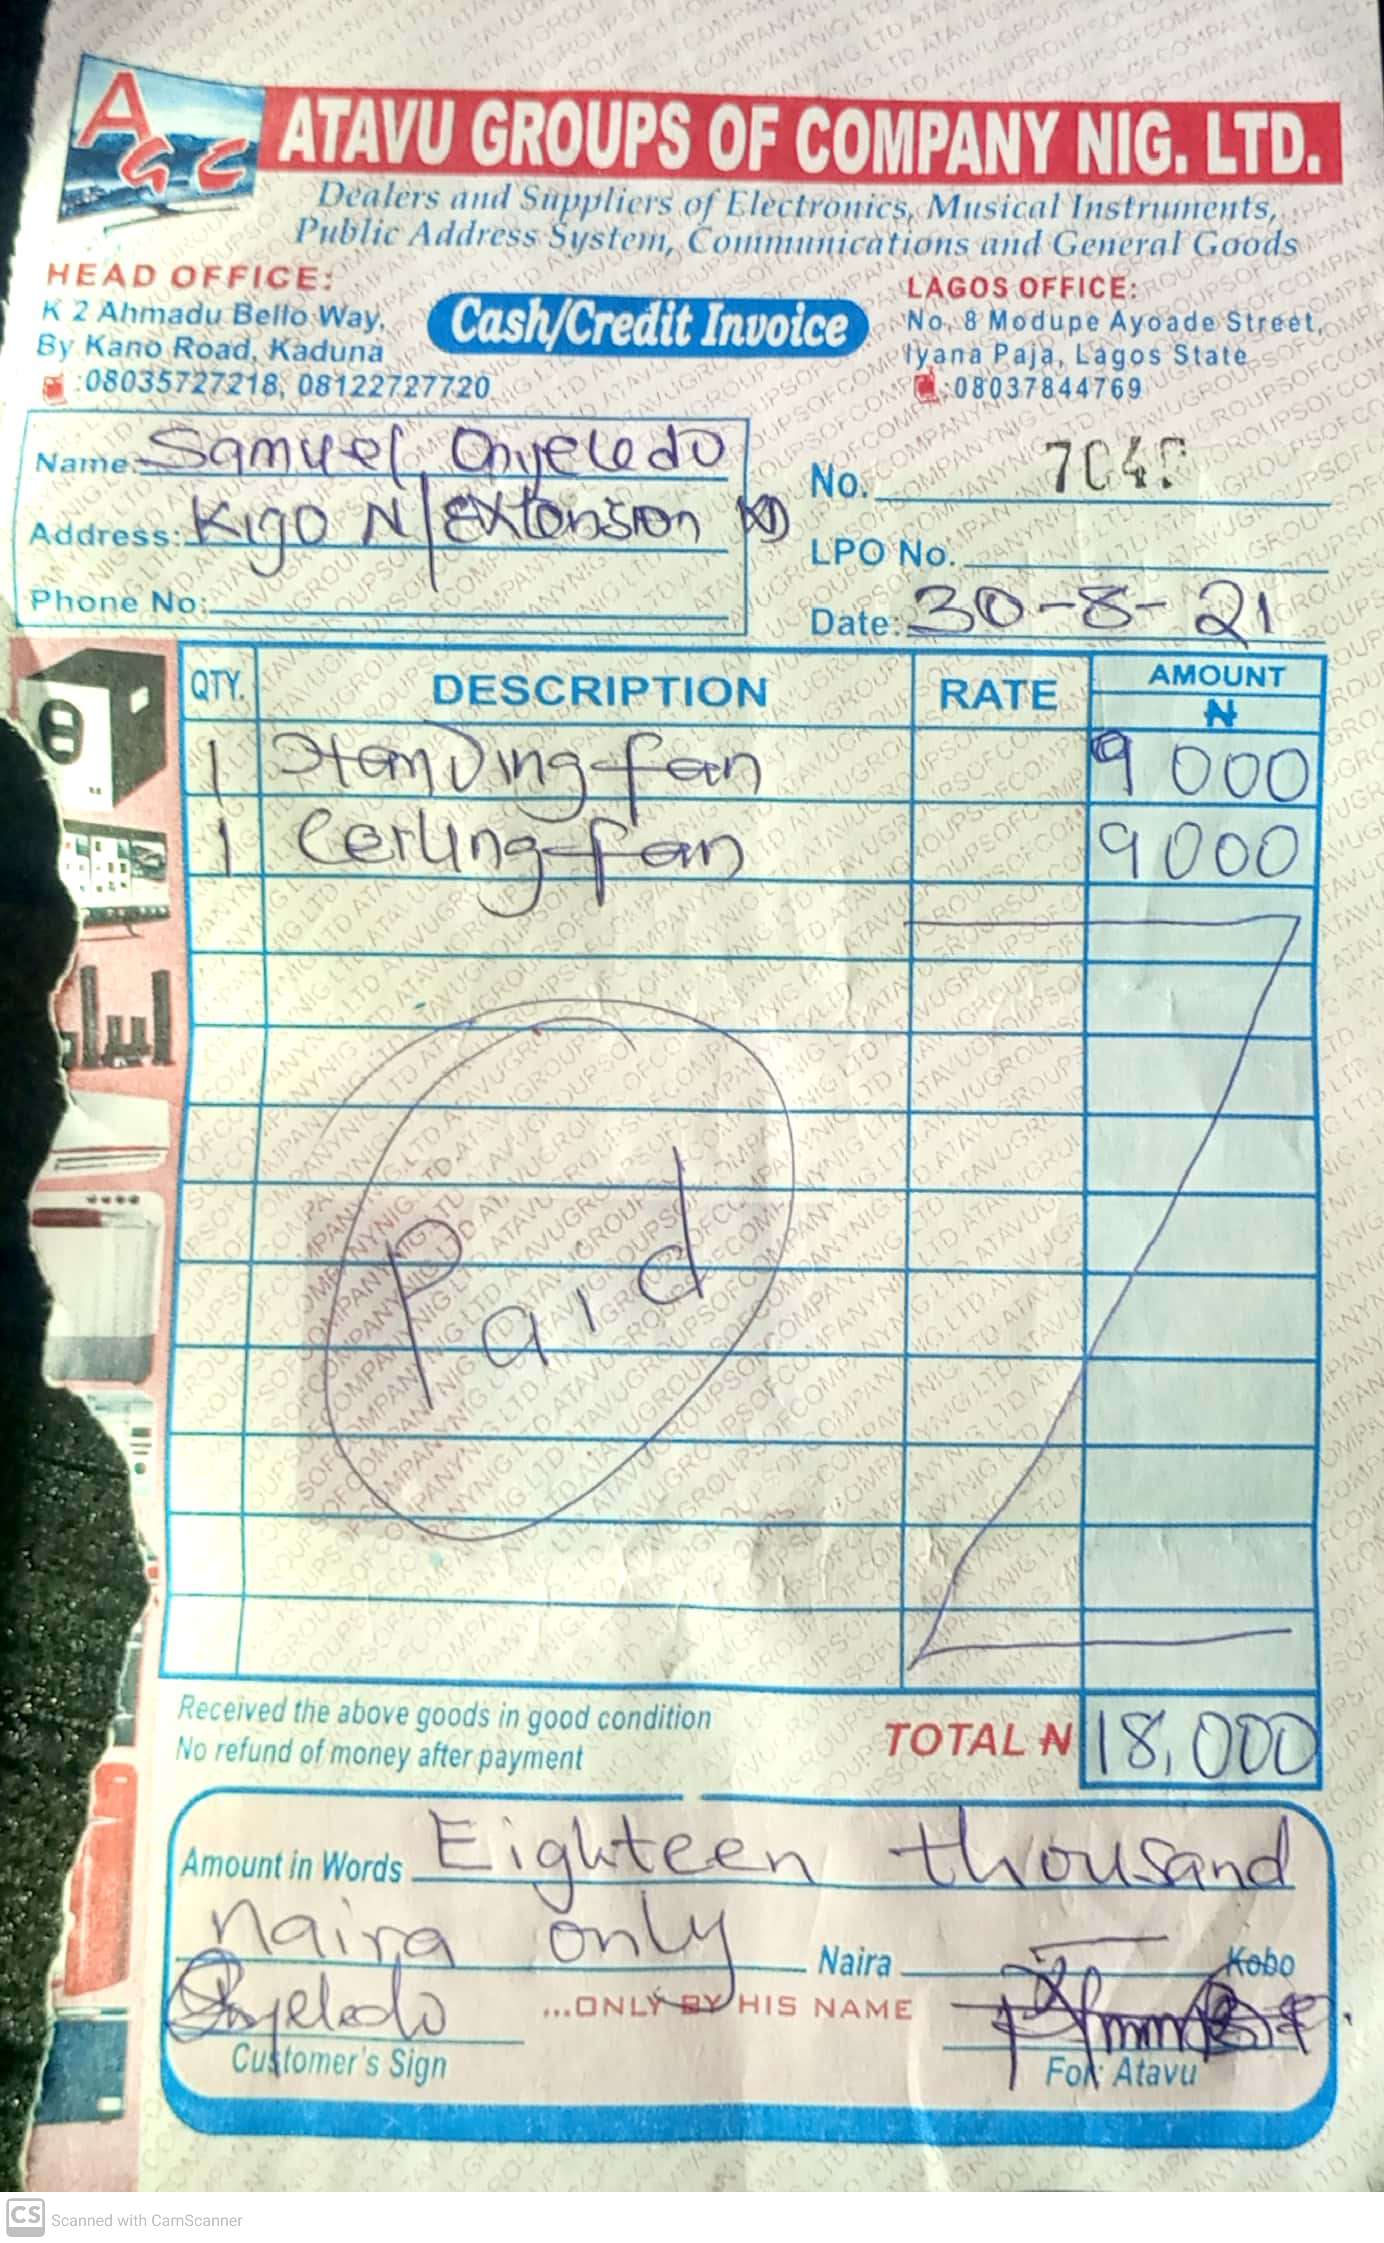 AGC
ATAVU GROUPS OF COMPANY NIG. LTD.
Dealers and Suppliers of Electronics, Musical Instruments,
Public Address System, Communications and General Goods
HEAD OFFICE:
K 2 Ahmadu Bello Way,
By Kano Road, Kaduna
:08035727218, 08122727720
Cash/Credit Invoice
LAGOS OFFICE:
No. 8 Modupe Ayoade Street,
Iyana Paja, Lagos State
:08037844769
Name: Samuel Onyeledo
Address: Kigo N/Extension KD
Phone No:
No.
LPO No.
Date: 30-8-21
QTY. DESCRIPTION RATE AMOUNT
₦
1 Standing fan 9 000
1 Cerling fan 9000
Paid
Received the above goods in good condition
No refund of money after payment
TOTAL ₦ 18,000
Amount in Words Eighteen thousand
naira only Naira Kobo
Onyeledo ...ONLY BY HIS NAME
Customer's Sign For: Atavu
CS Scanned with CamScanner